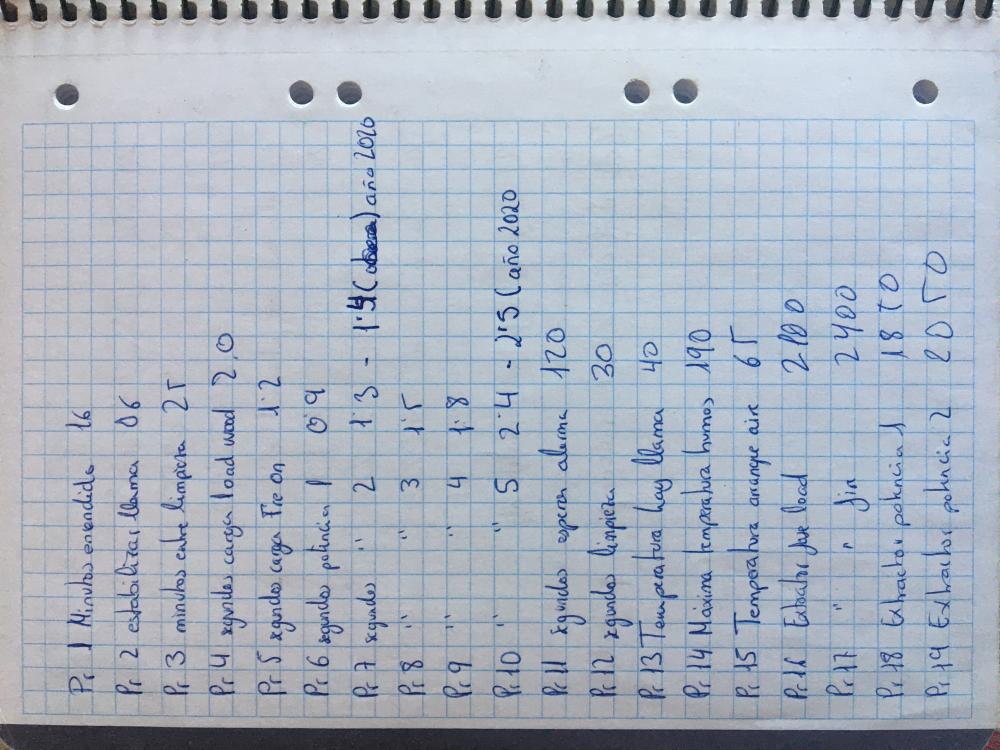 Pr 1 Minutos encendido 16
Pr 2 estabilizar llama 06
Pr 3 minutos entre limpieza 25
Pr 4 segundos carga load wood 2,0
Pr 5 segundos carga Fire on 1'2
Pr 6 segundos potencia 1 0'9
Pr 7 segundos " 2 1'3 - 1'4 ( ) año 2020
Pr 8 " " 3 1'5
Pr 9 " " 4 1'8
Pr 10 " " 5 2'4 - 2'5 (año 2020
Pr 11 segundos espera alarma 120
Pr 12 segundos limpieza 30
Pr 13 Temperatura hay llama 40
Pr 14 Máxima temperatura humos 190
Pr 15 Temperatura arranque aire 65
Pr 16 Extractor fase load 2100
Pr 17 " " fin 2400
Pr 18 Extractor potencia 1 1850
Pr 19 Extractor potencia 2 2050